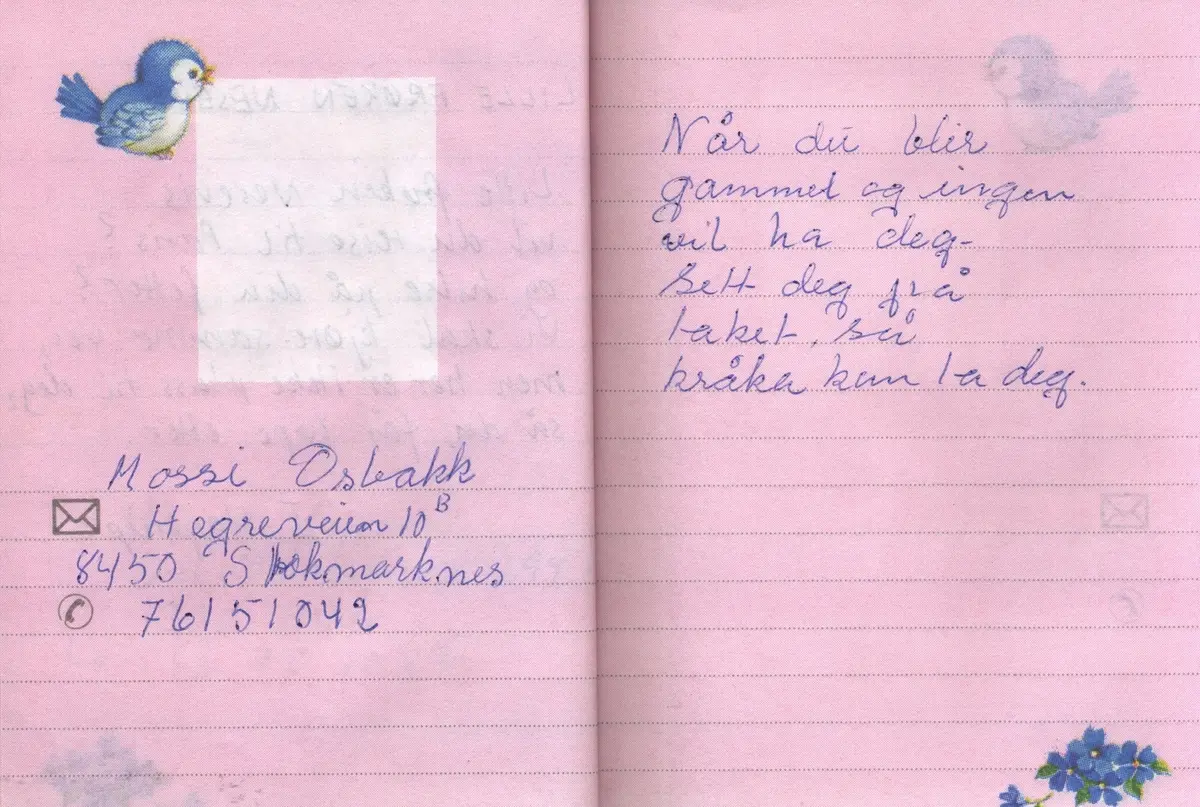 Mossi Osbakk
Hegreveien 10 B
8450 Stokmarknes
76151042
Når du blir
gammel og ingen
vil ha deg-
sett deg på
taket, så
kråka kan ta deg.